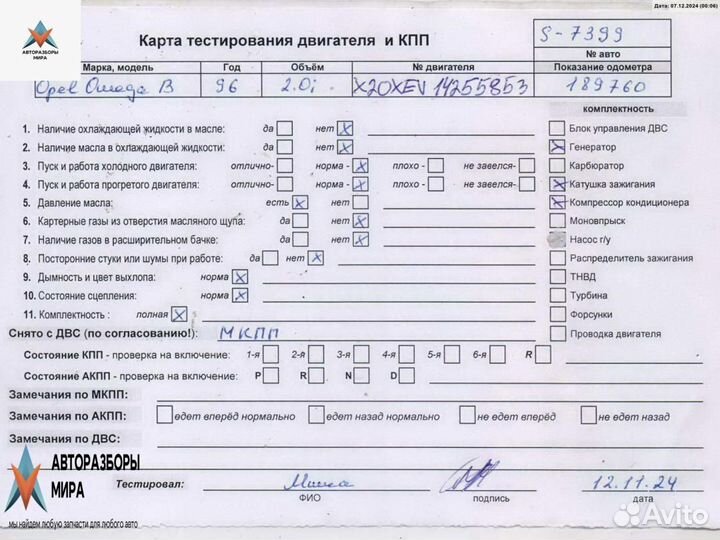 Дата: 07.12.2024 (00:06)
АВТОРАЗБОРЫ
МИРА
Карта тестирования двигателя и КПП
S-7399
№ авто
Марка, модель Год Объём № двигателя Показание одометра
Opel Omega B 96 2.0i X20XEV 14255853 189760
комплектность
1. Наличие охлаждающей жидкости в масле: да нет X Блок управления ДВС
2. Наличие масла в охлаждающей жидкости: да нет X X Генератор
3. Пуск и работа холодного двигателя: отлично- норма - X плохо - не завелся- Карбюратор
4. Пуск и работа прогретого двигателя: отлично- норма - X плохо - не завелся- X Катушка зажигания
5. Давление масла: есть X нет X Компрессор кондиционера
6. Картерные газы из отверстия масляного щупа: да нет X Моновпрыск
7. Наличие газов в расширительном бачке: да нет X Насос г/у
8. Посторонние стуки или шумы при работе: да нет X Распределитель зажигания
9. Дымность и цвет выхлопа: норма X ТНВД
10. Состояние сцепления: норма X Турбина
11. Комплектность : полная X Форсунки
Снято с ДВС (по согласованию!): МКПП Проводка двигателя
Состояние КПП - проверка на включение: 1-я 2-я 3-я 4-я 5-я 6-я R
Состояние АКПП - проверка на включение: P R N D
Замечания по МКПП:
Замечания по АКПП: едет вперёд нормально едет назад нормально не едет вперёд не едет назад
Замечания по ДВС:
АВТОРАЗБОРЫ
МИРА
мы найдем любую запчасти для любого авто
Тестировал: Миша 12.11.24
ФИО подпись дата
Avito